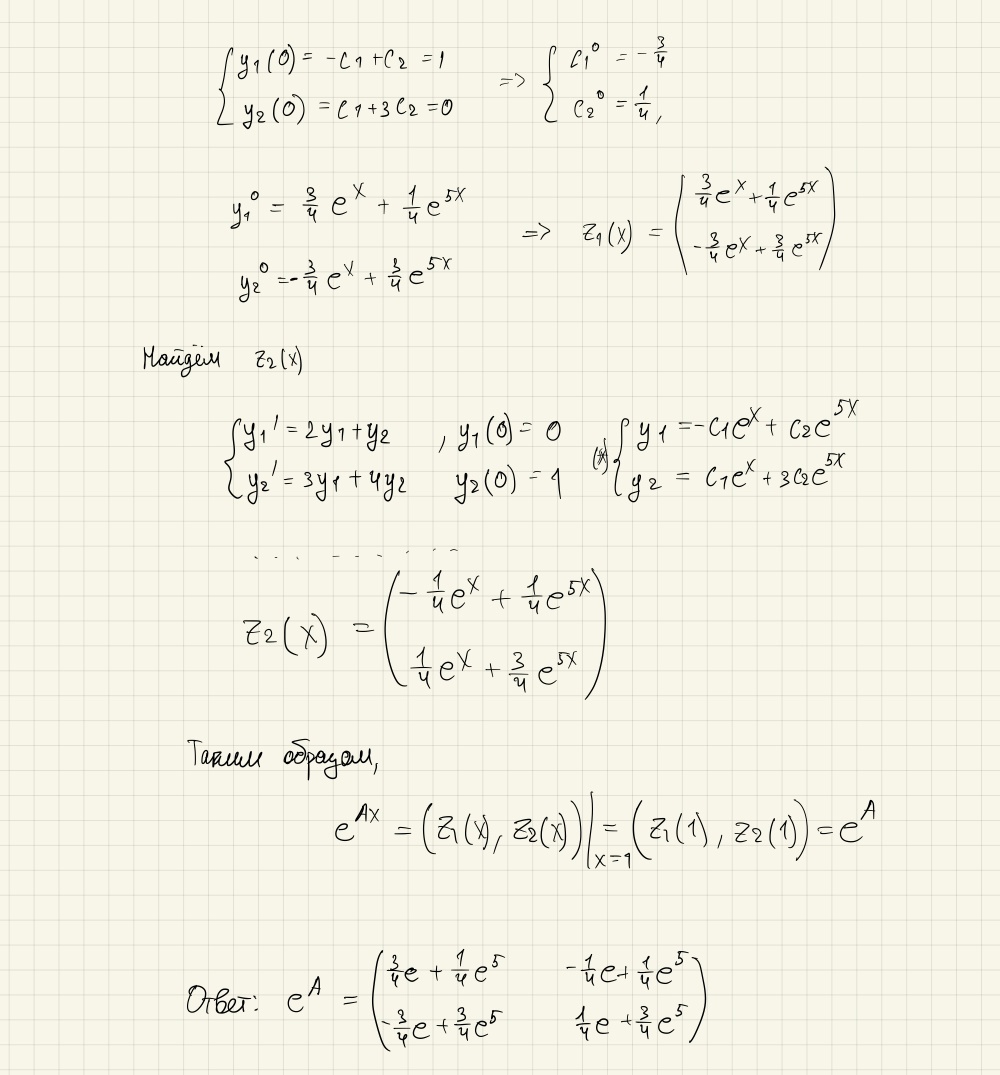 { y₁(0) = -c₁ + c₂ = 1 => { c₁⁰ = -3/4
y₂(0) = c₁ + 3c₂ = 0 c₂⁰ = 1/4,
y₁⁰ = 3/4 eˣ + 1/4 e⁵ˣ
y₂⁰ = -3/4 eˣ + 3/4 e⁵ˣ
=> z₁(x) = ( 3/4 eˣ + 1/4 e⁵ˣ
-3/4 eˣ + 3/4 e⁵ˣ )
Найдём z₂(x)
{ y₁' = 2y₁ + y₂ , y₁(0) = 0 (*) { y₁ = -c₁eˣ + c₂e⁵ˣ
y₂' = 3y₁ + 4y₂ y₂(0) = 1 y₂ = c₁eˣ + 3c₂e⁵ˣ
. . . . . . . . .
z₂(x) = ( -1/4 eˣ + 1/4 e⁵ˣ
1/4 eˣ + 3/4 e⁵ˣ )
Таким образом,
e^(Ax) = (z₁(x), z₂(x))|ₓ₌₁ = (z₁(1), z₂(1)) = e^A
Ответ: e^A = ( 3/4 e + 1/4 e⁵ -1/4 e + 1/4 e⁵
-3/4 e + 3/4 e⁵ 1/4 e + 3/4 e⁵ )